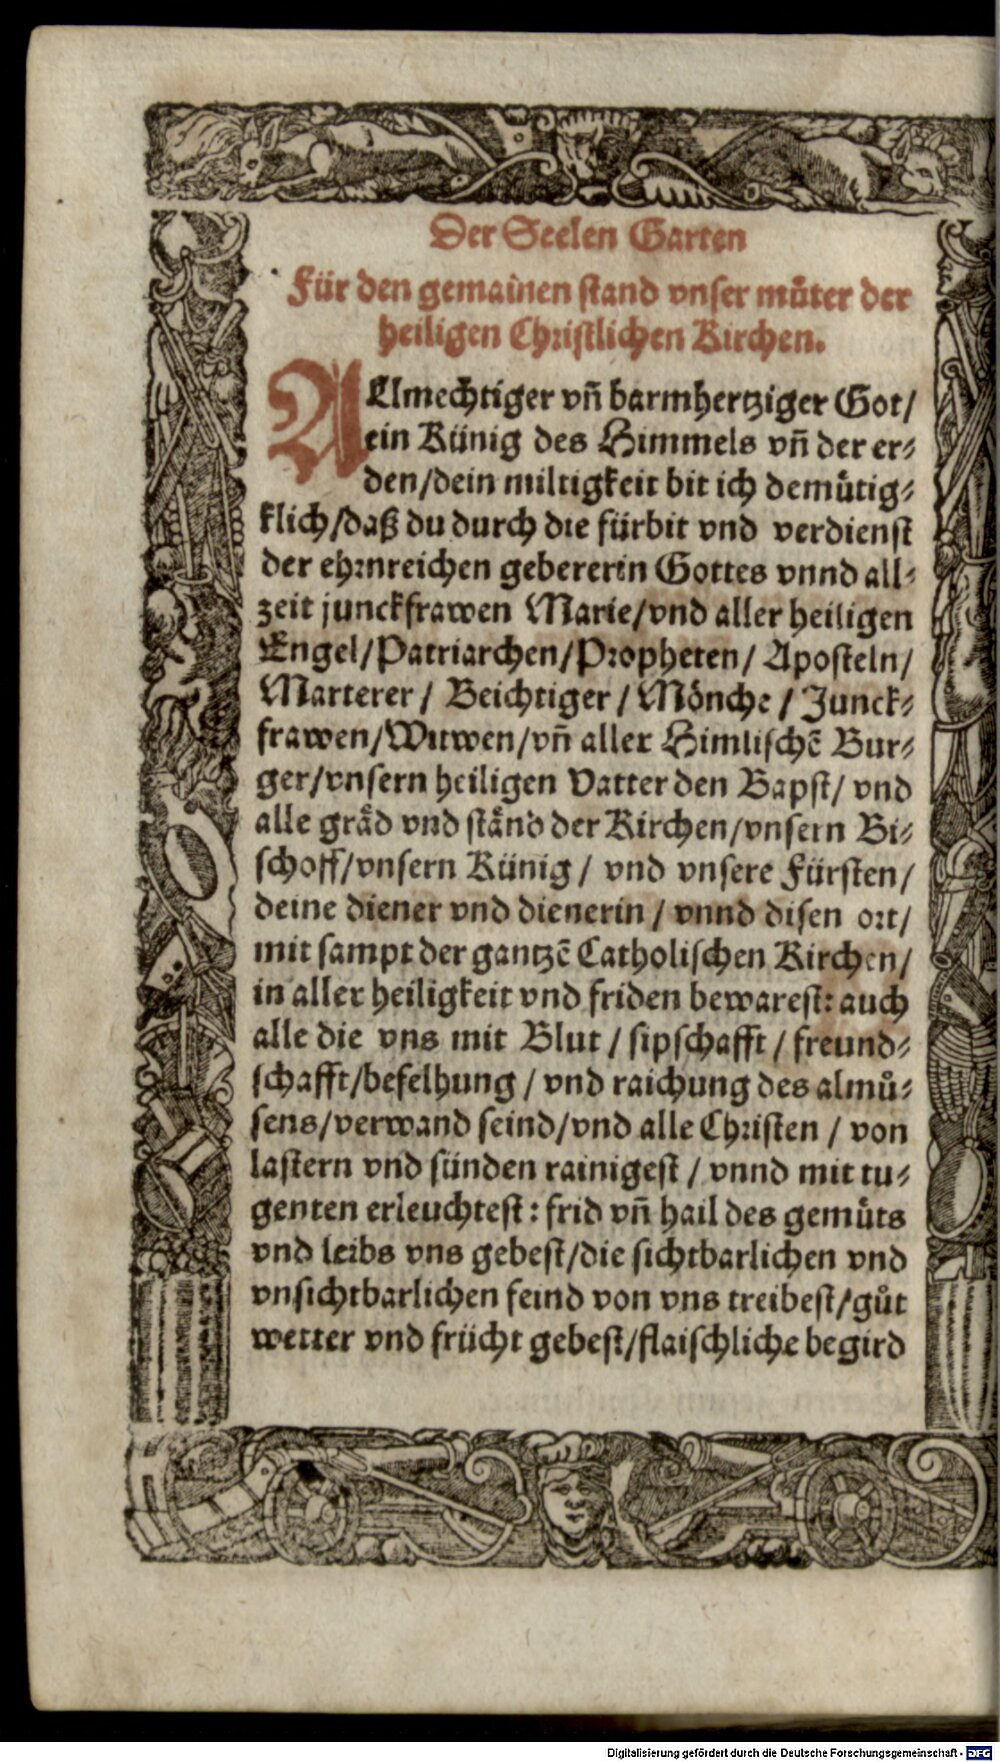 Der Seelen Garten
Für den gemainen stand vnser můter der
heiligen Christlichen Kirchen.
ALlmechtiger vñ barmhertziger Got/
ein Künig des Himmels vñ der er⸗
den/dein miltigkeit bit ich demütig⸗
klich/daß du durch die fürbit vnd verdienst
der ehrnreichen gebererin Gottes vnnd all⸗
zeit junckfrawen Marie/vnd aller heiligen
Engel/Patriarchen/Propheten/ Aposteln/
Marterer / Beichtiger / Mönche / Junck⸗
frawen/Witwen/vñ aller Himlischẽ Bur⸗
ger/vnsern heiligen Vatter den Bapst/ vnd
alle gråd vnd ständ der Kirchen/vnsern Bi⸗
schoff/vnsern Künig / vnd vnsere Fürsten/
deine diener vnd dienerin / vnnd disen ort/
mit sampt der gantzẽ Catholischen Kirchen/
in aller heiligkeit vnd friden bewarest: auch
alle die vns mit Blut / sipschafft / freund⸗
schafft/befelhung / vnd raichung des almů⸗
sens/verwand seind/vnd alle Christen / von
lastern vnd sünden rainigest / vnnd mit tu⸗
genten erleuchtest: frid vñ hail des gemüts
vnd leibs vns gebest/die sichtbarlichen vnd
vnsichtbarlichen feind von vns treibest/gůt
wetter vnd frücht gebest/flaischliche begird
Digitalisierung gefördert durch die Deutsche Forschungsgemeinschaft - DFG